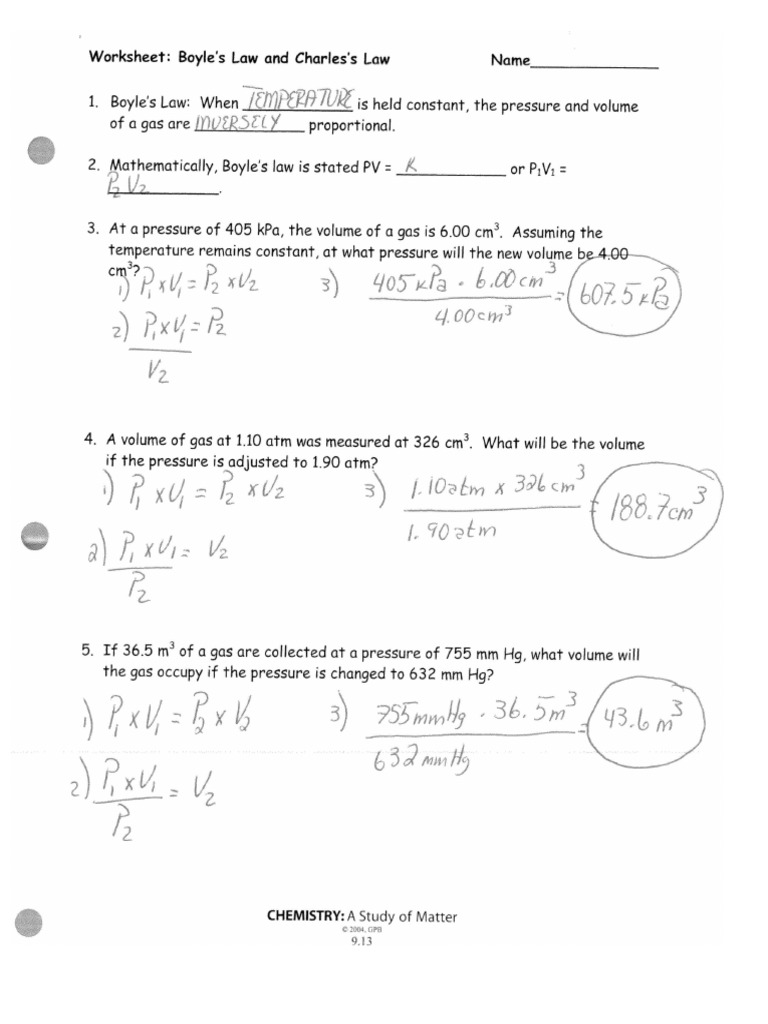 Worksheet: Boyle's Law and Charles's Law Name________________
1. Boyle's Law: When TEMPERATURE is held constant, the pressure and volume
of a gas are INVERSELY proportional.
2. Mathematically, Boyle's law is stated PV = K or P₁V₁ =
P₂V₂.
3. At a pressure of 405 kPa, the volume of a gas is 6.00 cm³. Assuming the
temperature remains constant, at what pressure will the new volume be 4.00
cm³?
1) P₁xV₁ = P₂xV₂
2) P₁xV₁ = P₂
V₂
3) 405 kPa · 6.00 cm³ = 607.5 kPa
4.00 cm³
4. A volume of gas at 1.10 atm was measured at 326 cm³. What will be the volume
if the pressure is adjusted to 1.90 atm?
1) P₁ xV₁ = P₂ xV₂
2) P₁ xV₁ = V₂
P₂
3) 1.10 atm x 326 cm³ = 188.7 cm³
1.90 atm
5. If 36.5 m³ of a gas are collected at a pressure of 755 mm Hg, what volume will
the gas occupy if the pressure is changed to 632 mm Hg?
1) P₁ xV₁ = P₂ x V₂
2) P₁ xV₁ = V₂
P₂
3) 755 mmHg · 36.5 m³ = 43.6 m³
632 mmHg
CHEMISTRY: A Study of Matter
© 2004, GPB
9.13